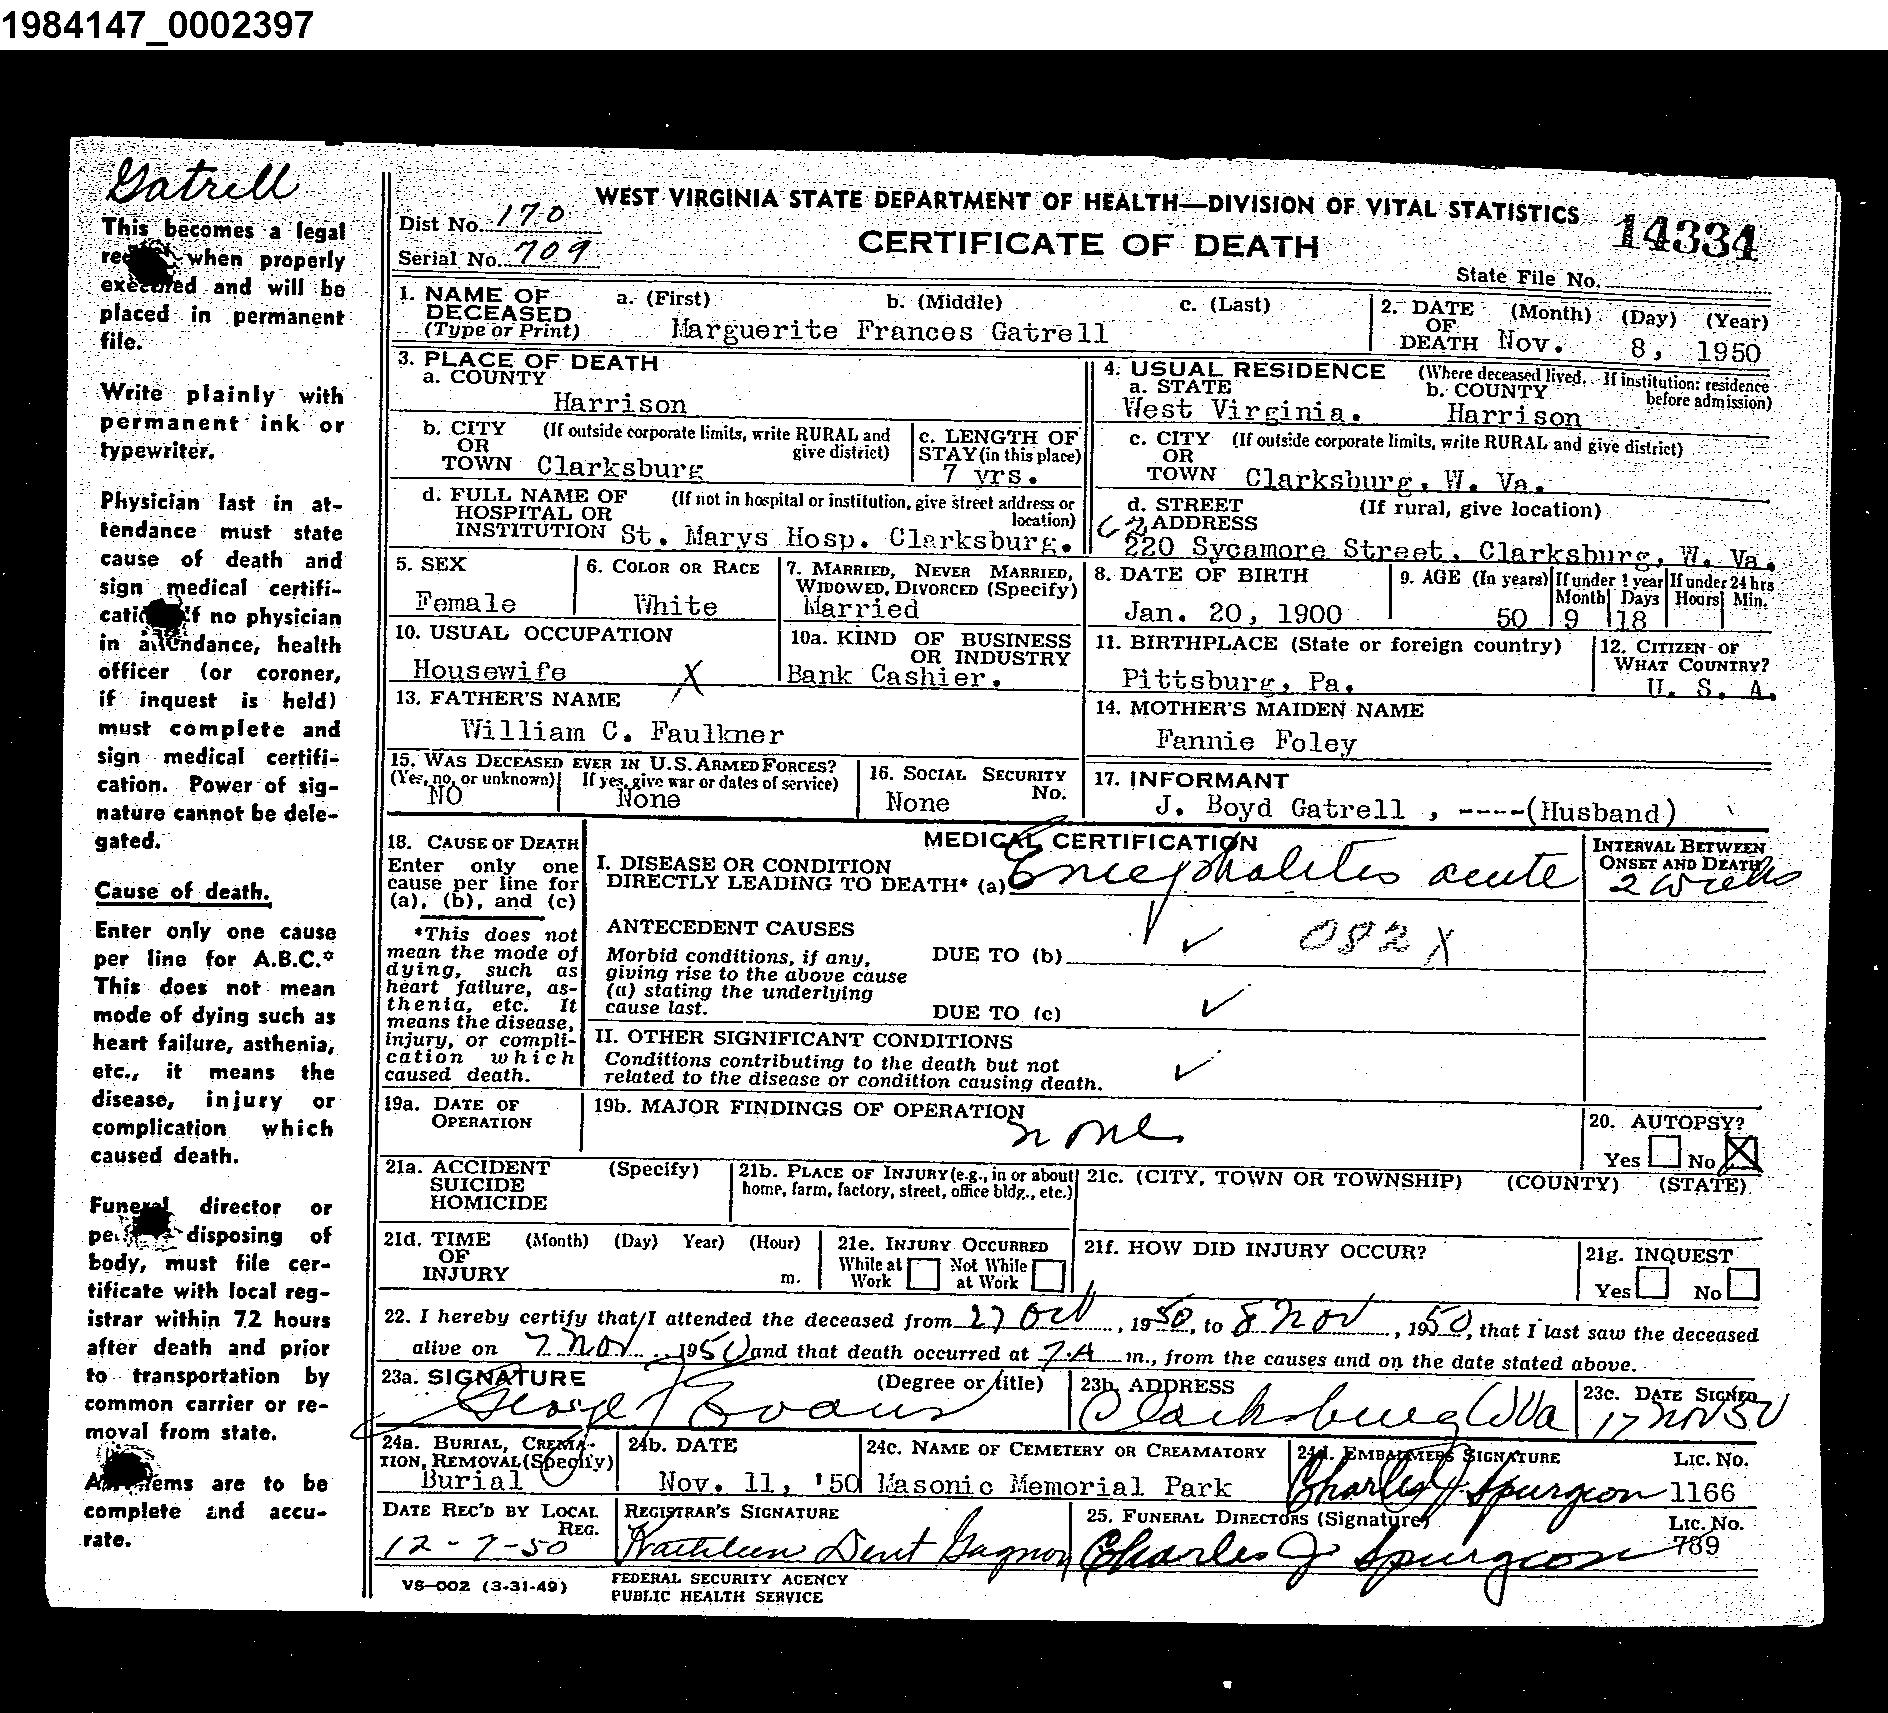 1984147_0002397
Gatrell
This becomes a legal
when properly
executed and will be
placed in permanent
file.
Write plainly with
permanent ink or
typewriter.
Physician last in at-
tendance must state
cause of death and
sign medical certifi-
If no physician
in attendance, health
officer (or coroner,
if inquest is held)
must complete and
sign medical certifi-
cation. Power of sig-
nature cannot be dele-
gated.
Cause of death.
Enter only one cause
per line for A.B.C.*
This does not mean
mode of dying such as
heart failure, asthenia,
etc., it means the
disease, injury or
complication which
caused death.
Funeral director or
disposing of
body, must file cer-
tificate with local reg-
istrar within 72 hours
after death and prior
to transportation by
common carrier or re-
moval from state.
are to be
complete and accu-
rate.
WEST VIRGINIA STATE DEPARTMENT OF HEALTH—DIVISION OF VITAL STATISTICS
Dist No. 170
Serial No. 709
CERTIFICATE OF DEATH
14334
State File No.
1. NAME OF DECEASED (Type or Print) a. (First) b. (Middle) c. (Last)
Marguerite Frances Gatrell
2. DATE OF DEATH (Month) (Day) (Year)
Nov. 8, 1950
3. PLACE OF DEATH
a. COUNTY
Harrison
4. USUAL RESIDENCE (Where deceased lived. If institution: residence before admission)
a. STATE b. COUNTY
West Virginia. Harrison
b. CITY OR TOWN (If outside corporate limits, write RURAL and give district)
Clarksburg
c. LENGTH OF STAY (in this place)
7 yrs.
c. CITY OR TOWN (If outside corporate limits, write RURAL and give district)
Clarksburg, W. Va.
d. FULL NAME OF HOSPITAL OR INSTITUTION (If not in hospital or institution, give street address or location)
St. Marys Hosp. Clarksburg.
d. STREET ADDRESS (If rural, give location)
220 Sycamore Street, Clarksburg, W. Va.
5. SEX
Female
6. COLOR OR RACE
White
7. MARRIED, NEVER MARRIED, WIDOWED, DIVORCED (Specify)
Married
8. DATE OF BIRTH
Jan. 20, 1900
9. AGE (In years) If under 1 year Month Days If under 24 hrs Hours Min.
50 9 18
10. USUAL OCCUPATION
Housewife X
10a. KIND OF BUSINESS OR INDUSTRY
Bank Cashier.
11. BIRTHPLACE (State or foreign country)
Pittsburg, Pa.
12. CITIZEN OF WHAT COUNTRY?
U. S. A.
13. FATHER'S NAME
William C. Faulkner
14. MOTHER'S MAIDEN NAME
Fannie Foley
15. WAS DECEASED EVER IN U.S. ARMED FORCES?
(Yes, no, or unknown) If yes, give war or dates of service)
NO None
16. SOCIAL SECURITY No.
None
17. INFORMANT
J. Boyd Gatrell , ----(Husband)
18. CAUSE OF DEATH
Enter only one
cause per line for
(a), (b), and (c)
*This does not
mean the mode of
dying, such as
heart failure, as-
thenia, etc. It
means the disease,
injury, or compli-
cation which
caused death.
MEDICAL CERTIFICATION
I. DISEASE OR CONDITION
DIRECTLY LEADING TO DEATH* (a) Encephalitis acute
INTERVAL BETWEEN ONSET AND DEATH
2 weeks
ANTECEDENT CAUSES
Morbid conditions, if any,
giving rise to the above cause
(a) stating the underlying
cause last.
DUE TO (b) ✓ 082X
DUE TO (c) ✓
II. OTHER SIGNIFICANT CONDITIONS
Conditions contributing to the death but not
related to the disease or condition causing death. ✓
19a. DATE OF OPERATION
19b. MAJOR FINDINGS OF OPERATION
none
20. AUTOPSY?
Yes No X
21a. ACCIDENT SUICIDE HOMICIDE (Specify)
21b. PLACE OF INJURY (e.g., in or about home, farm, factory, street, office bldg., etc.)
21c. (CITY, TOWN OR TOWNSHIP) (COUNTY) (STATE)
21d. TIME OF INJURY (Month) (Day) Year) (Hour) m.
21e. INJURY OCCURRED
While at Work Not While at Work
21f. HOW DID INJURY OCCUR?
21g. INQUEST
Yes No
22. I hereby certify that I attended the deceased from 27 Oct, 1950, to 8 Nov, 1950, that I last saw the deceased
alive on 7 Nov 1950 and that death occurred at 7.A m., from the causes and on the date stated above.
23a. SIGNATURE (Degree or title)
George F Evans
23b. ADDRESS
Clarksburg W Va
23c. DATE SIGNED
17 Nov 50
24a. BURIAL, CREMATION, REMOVAL (Specify)
Burial
24b. DATE
Nov. 11, '50
24c. NAME OF CEMETERY OR CREAMATORY
Masonic Memorial Park
24d. EMBALMERS SIGNATURE LIC. NO.
Charles J Spurgeon 1166
DATE REC'D BY LOCAL REG.
12-7-50
REGISTRAR'S SIGNATURE
Kathleen Dent Gagnon
25. FUNERAL DIRECTORS (Signature) LIC. NO.
Charles J Spurgeon 789
VS-002 (3-31-49)
FEDERAL SECURITY AGENCY
PUBLIC HEALTH SERVICE